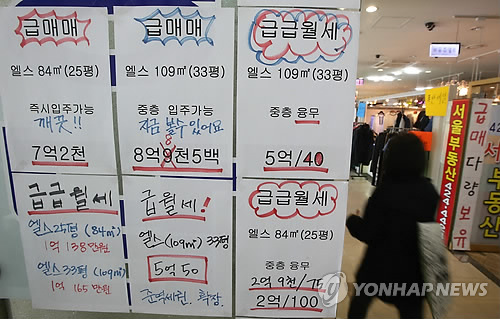 급매매
엘스 84㎡(25평)
즉시입주가능
깨끗!!
7억2천
급매매
엘스 109㎡(33평)
중층 입주가능
지금 볼수있어요
8억9천5백
8
급급월세
엘스 109㎡(33평)
중층 융무
5억/40
급급월세
엘스25평(84㎡)
1억 138만원
엘스33평(109㎡)
1억 165만원
급월세!
엘스(109㎡)33평
5억 50
준역세권, 확장.
급급월세
엘스 84㎡(25평)
중층 융무
2억 9천/75
2억/100
서울부동산
424-44
급매다량보유
42
부동산
YONHAP NEWS
연합뉴스
YONHAPNEWS